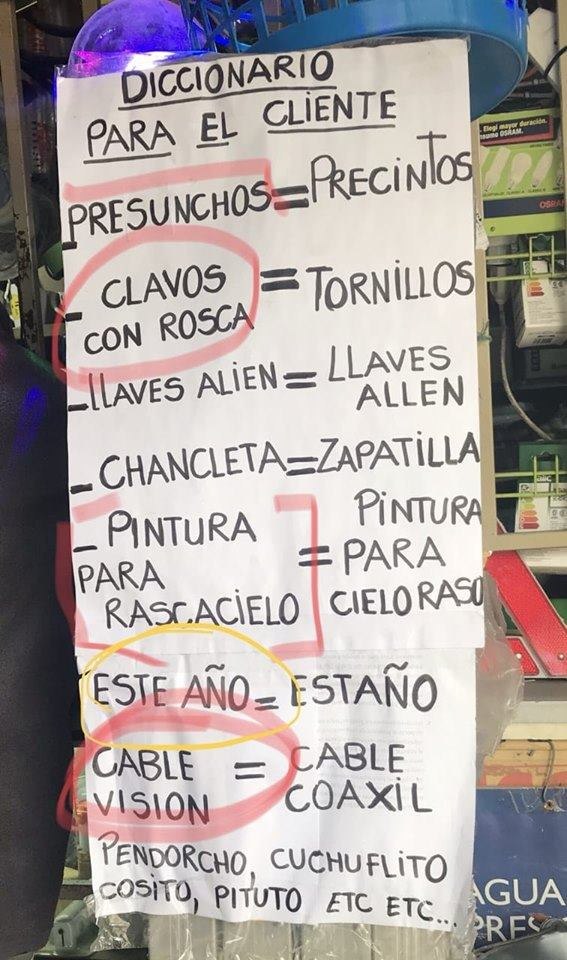 DICCIONARIO
PARA EL CLIENTE
- PRESUNCHOS = PRECINTOS
- CLAVOS CON ROSCA = TORNILLOS
- LLAVES ALIEN = LLAVES ALLEN
- CHANCLETA = ZAPATILLA
- PINTURA PARA RASCACIELO = PINTURA PARA CIELO RASO
ESTE AÑO = ESTAÑO
CABLE VISION = CABLE COAXIL
PENDORCHO, CUCHUFLITO
COSITO, PITUTO ETC ETC...
Elegí mayor duración.
OSRAM.
AGUA